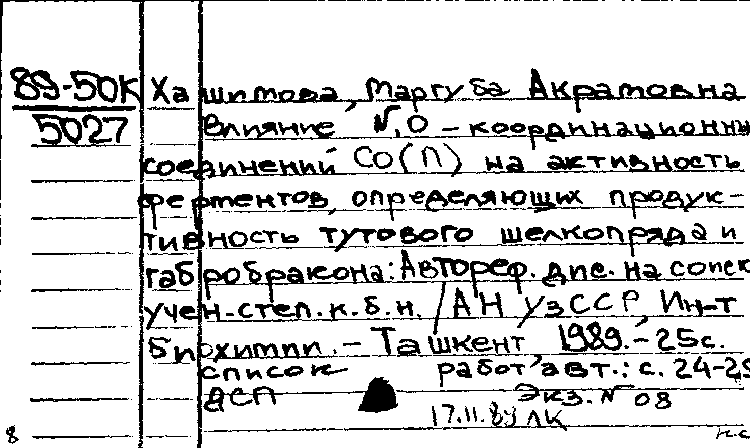 89-50К Хашимова, Маргуба Акрамовна
5027 Влияние N,О - координационны
соединений СО(П) на активность
ферментов, определяющих продук-
тивность тутового шелкопряда и
габробракона: Автореф. дис. на соиск
учен-степ. к.б.н. / АН УзССР, Ин-т
биохимии. - Ташкент 1989. - 25с.
список работ авт.: с. 24-25
ДСП Экз. N 08
17.11.89 ЛК
8 н.с